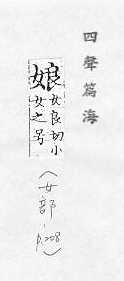 四聲篇海
娘女良切小
女之号
(女部,
p.208)